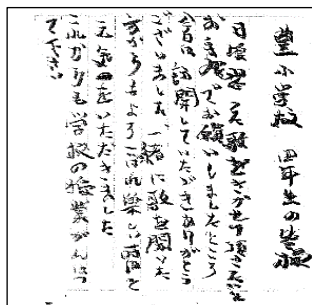 豊小学校 四年生の皆様
日頃習った歌をきかせて頂きたいと
お願いしましたところ
今日は訪問していただきありがとう
ございました、一緒に歌を聞いた
方からもよろこばれ楽しい
元気をいただきました
これからも学校の授業がんばっ
て下さい